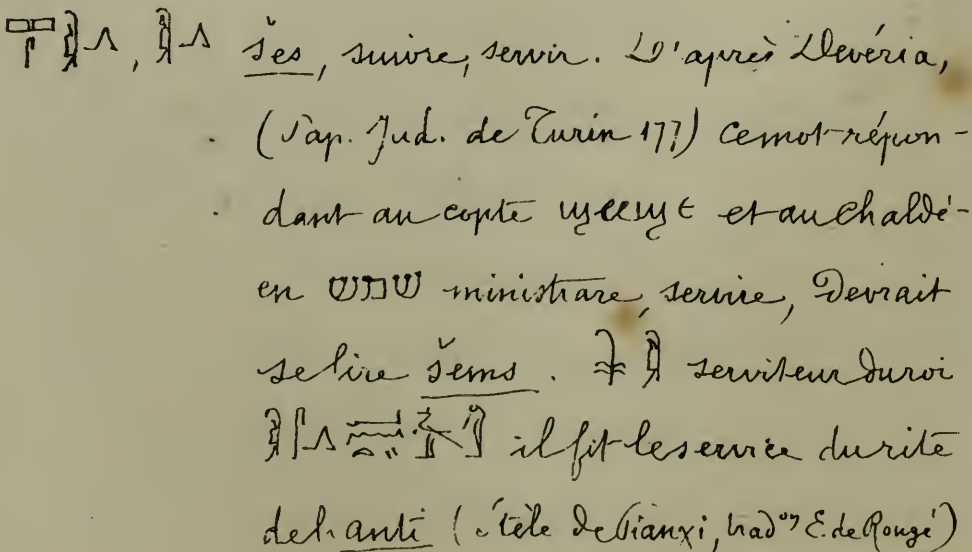 šes, suivre, servir. D'après Devéria,
(Pap. Jud. de Turin 177) ce mot répon-
dant au copte ϣⲙϣⲉ et au chaldé-
en שמש ministrare, servire, devrait
se lire šems. serviteur du roi
il fit le service du rite
de h. anti (stèle de Pianχi, trad.on E. de Rougé)